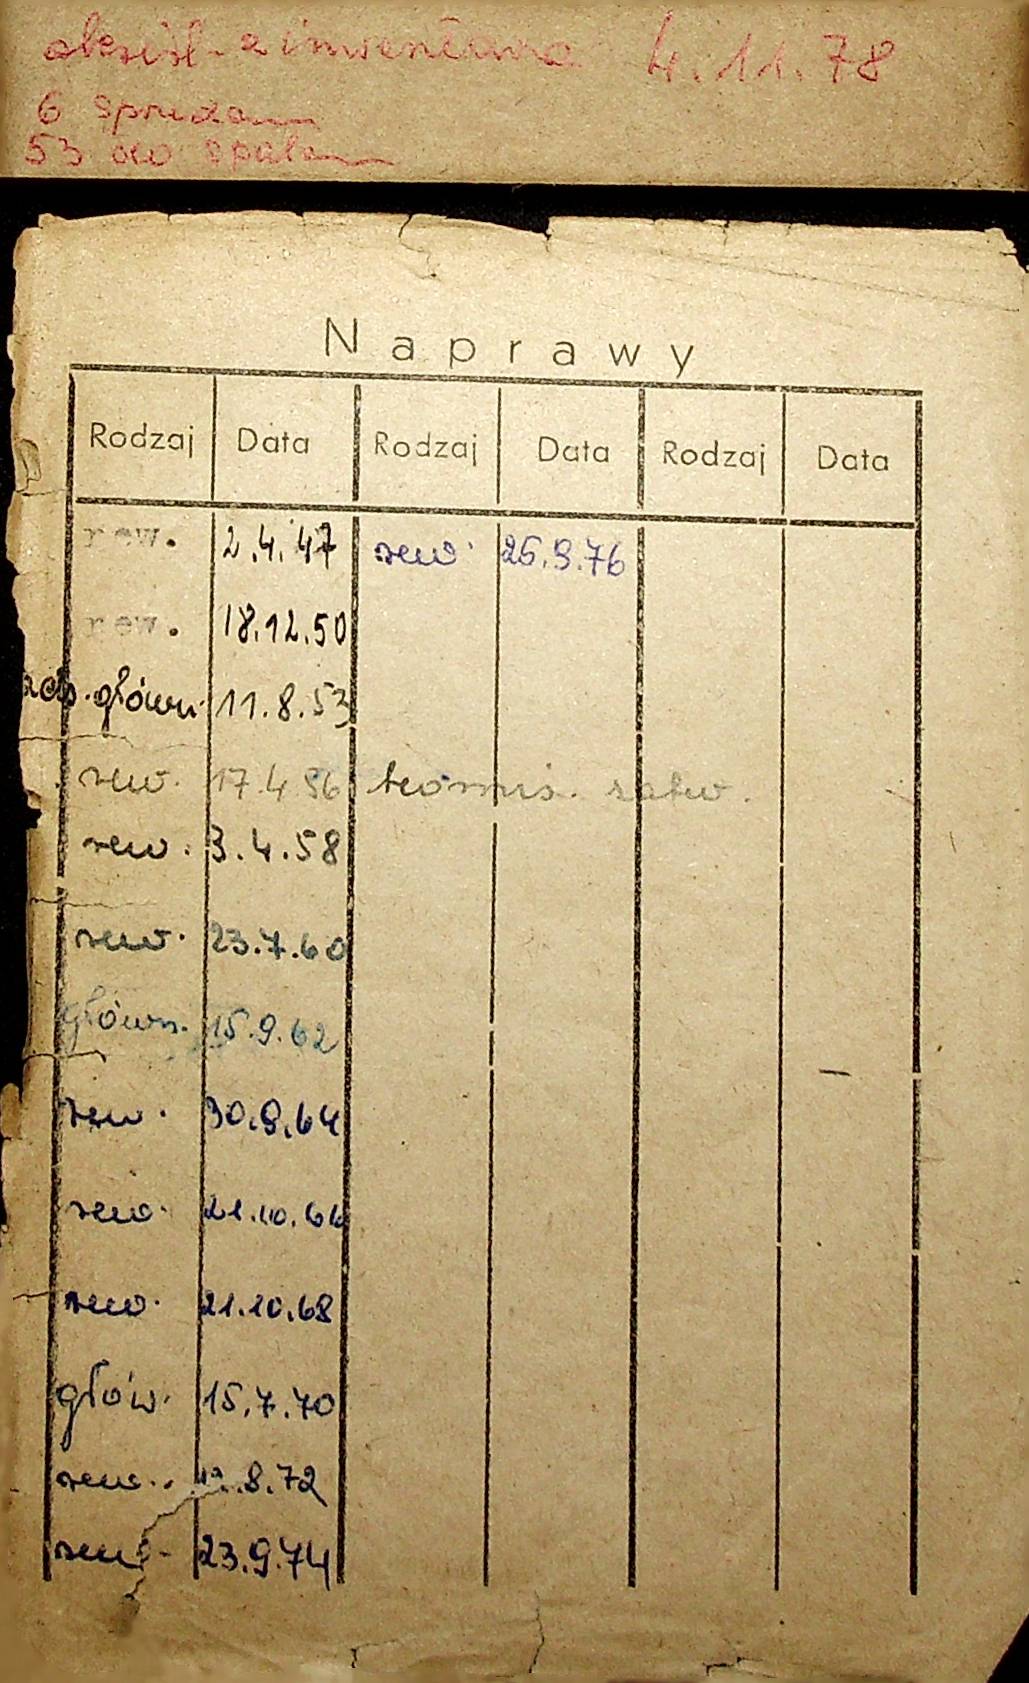 4.11.78
6
53 do
Naprawy
Rodzaj Data Rodzaj Data Rodzaj Data
rew. 2.4.47 rew. 25.9.76
rew. 18.12.50
główn. 11.8.53
rew. 17.4.56
rew. 3.4.58
rew. 23.7.60
główn. 15.9.62
rew. 30.9.64
rew. 21.10.66
rew. 21.10.68
głów. 15.7.70
rew. 8.72
rew. 23.9.74